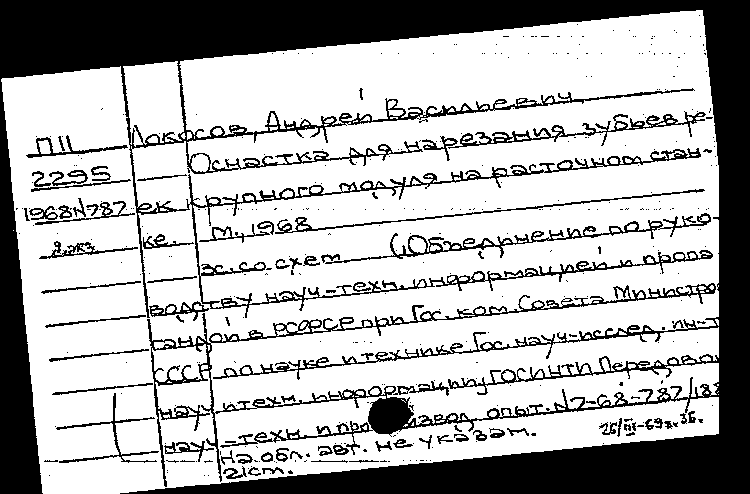 П11 Локосов, Андрей Васильевич.
2295 Оснастка для нарезания зубьев ре-
1968N787 ек крупного модуля на расточном стан-
2 экз ке. М., 1968
3с. со схем. (Объединение по руко-
водству науч-техн. информацией и пропа
гандой в РСФСР при Гос. ком. Совета Министро
СССР по науке и технике Гос. науч-исслед. ин-т
науч. и техн. информации, ГОСИНТИ Передовой
науч-техн. и производ. опыт. N7-68-787/188
На обл. авт. не указан.
21ст. 26/III-69г. 3б.